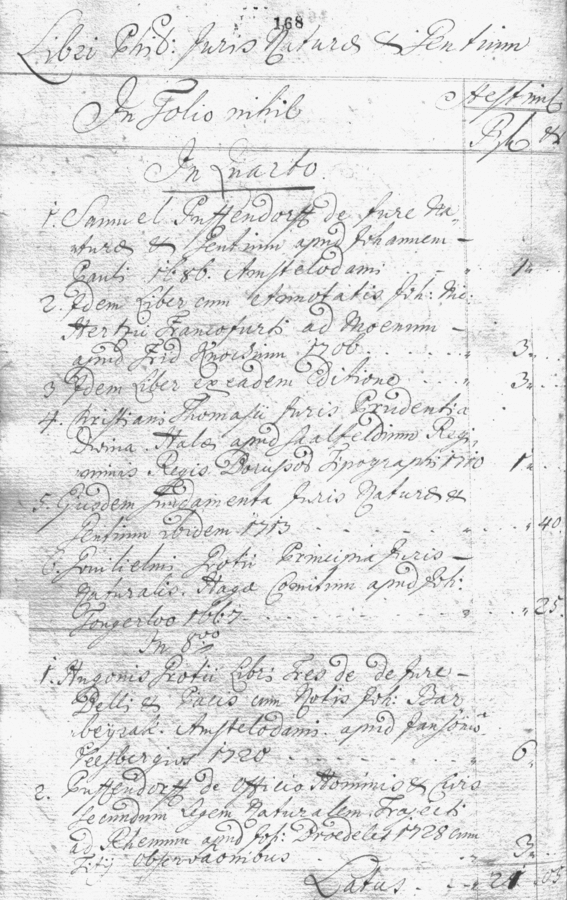 168
Libri Phil: Juris Naturæ & Gentium
Æstimat
In Folio nihil
Rſh &
In Quarto.
1. Samuel Puffendorff de Jure Na,
turæ & Gentium apud Johannem
Pauli 1686. Amstelodami 1
2. Idem Liber cum Annotatis Joh: Nic:
Hertii Francofurti ad Moenum
apud Frid Knochium 1706 3
3 Idem Liber ex eadem Editione 3
4. Christiani Thomasii Juris Prudentia
Divina Halæ apud Saalfeldium Regi,
minis Regis Borussor Typographi 1710 1
5. Ejusdem Fundamenta Juris Naturæ &
Gentium Ibidem 1713 40
6. Guilielmi Grotii Principia Juris
Naturalis. Haga Comitum apud Joh:
Tongerloo 1667 25
In 8vo
1. Hugonis Grotii Libri Tres de de Jure
Belli & Pacis cum Notis Joh: Bar
beyrak. Amstelodami apud Jansonio
Veesbergios 1720 6
2. Puffendorff de Officio Hominis & Civis
Secundum Legem Naturalem Trajecti
ad Rhenum apud Joh: Broedelet 1728 cum
Observationibus 3
Latus 21 05